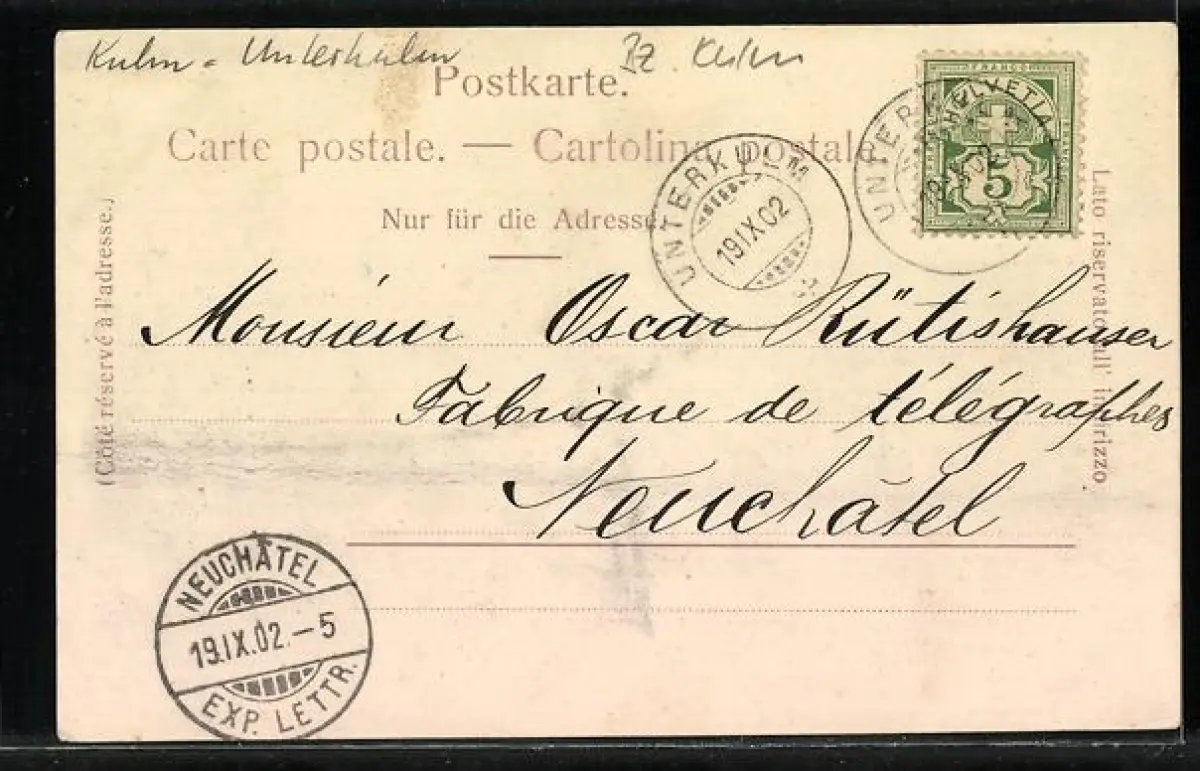 Kulm - Unterkulm Bz. Kulm
Postkarte.
Carte postale. — Cartolina postale
Nur für die Adresse.
FRANCO
HELVETIA
5
UNTERKULM
UNTERKULM
19 IX 02
(Côté réservé à l'adresse.)
Lato riservato all' indirizzo
Monsieur Oscar Rütishauser
Fabrique de télégraphes
Neuchâtel
NEUCHÂTEL
19.IX.02.-5
EXP. LETTR.